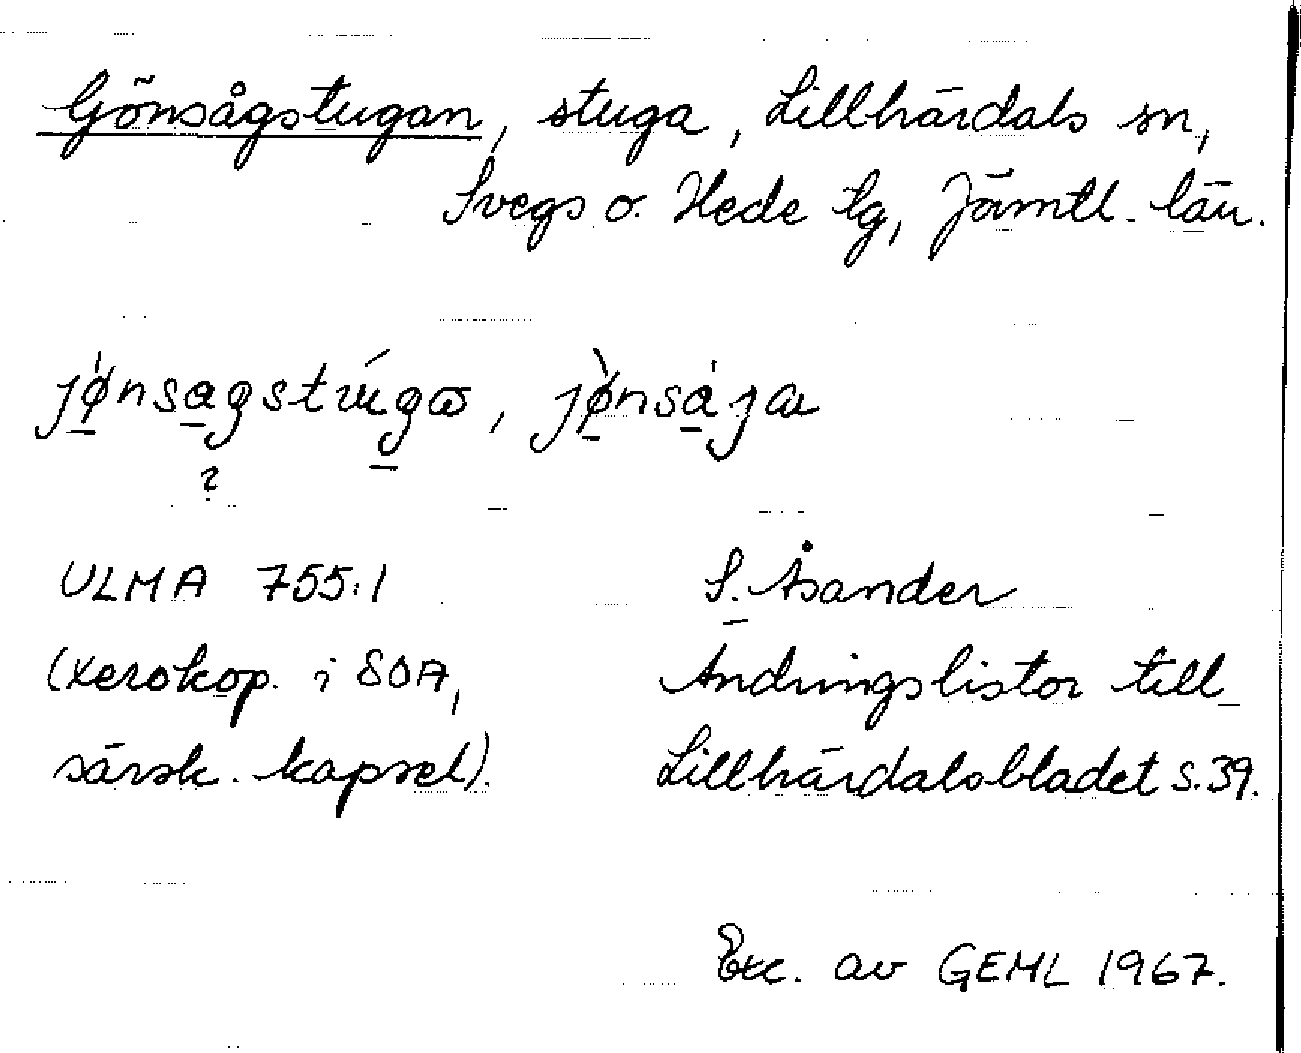 Gönsågstugan, stuga, Lillhärdals sn,
Svegs o. Hede tg, Jämtl. län.
jønsagstúgɷ, jønsaȷa
?
ULMA 755:1
S. Åsander
(xerokop. i SOA,
Ändringslistor till
särsk. kapsel).
Lillhärdalsbladet s. 39.
Exc. av GEML 1967.